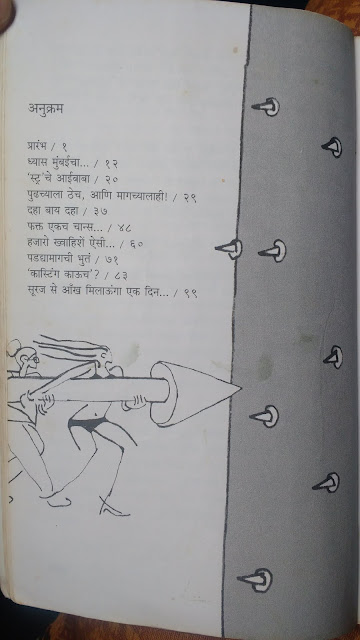 अनुक्रम
प्रारंभ / १
ध्यास मुंबईचा... / १२
'स्ट्र'चे आईबाबा / २०
पुढच्याला ठेच, आणि मागच्यालाही! / २९
दहा बाय दहा / ३७
फक्त एकच चान्स... / ४८
हजारो ख्वाहिशें ऐसी... / ६०
पडद्यामागची भुतं / ७१
'कास्टिंग काऊच'? / ८३
सूरज से आँख मिलाऊंगा एक दिन... / ९९